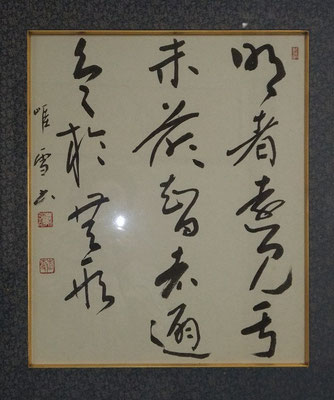 明者遠見于
未萌智者避
危於無形
唯雪書